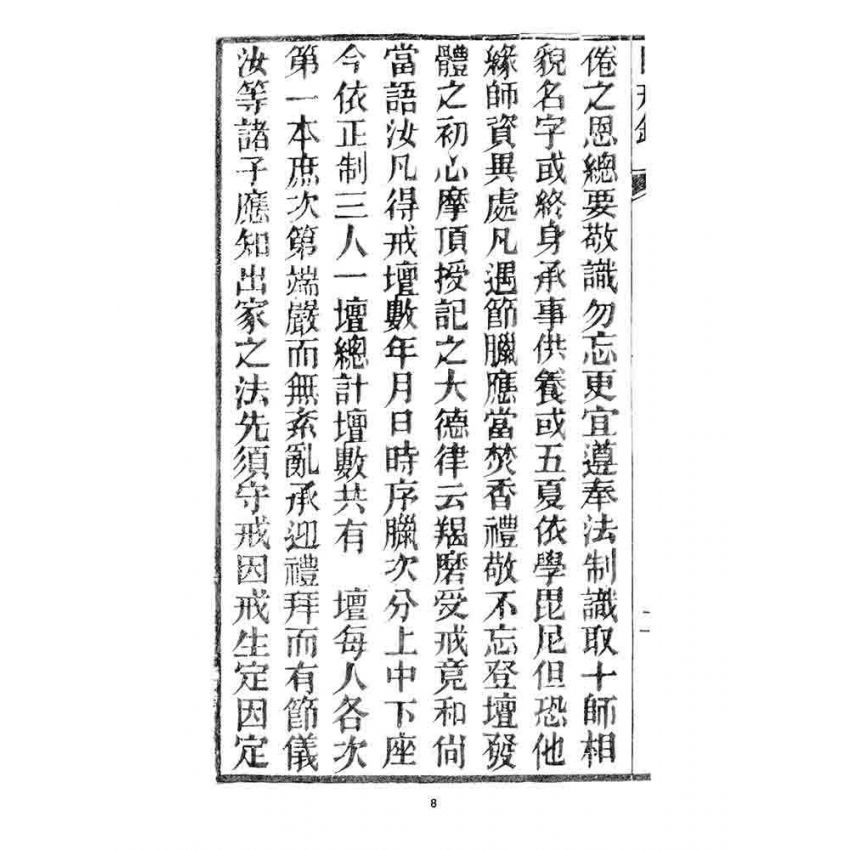 倦之恩總要敬識勿忘更宜遵奉法制識取十師相
貌名字或終身承事供養或五夏依學毘尼但恐他
緣師資異處凡遇節臘應當焚香禮敬不忘登壇發
體之初心摩頂授記之大德律云羯磨受戒竟和尚
當語汝凡得戒壇數年月日時序臘次分上中下座
今依正制三人一壇總計壇數共有　壇每人各次
第一本庶次第端嚴而無紊亂承迎禮拜而有節儀
汝等諸子應知出家之法先須守戒因戒生定因定
二
8